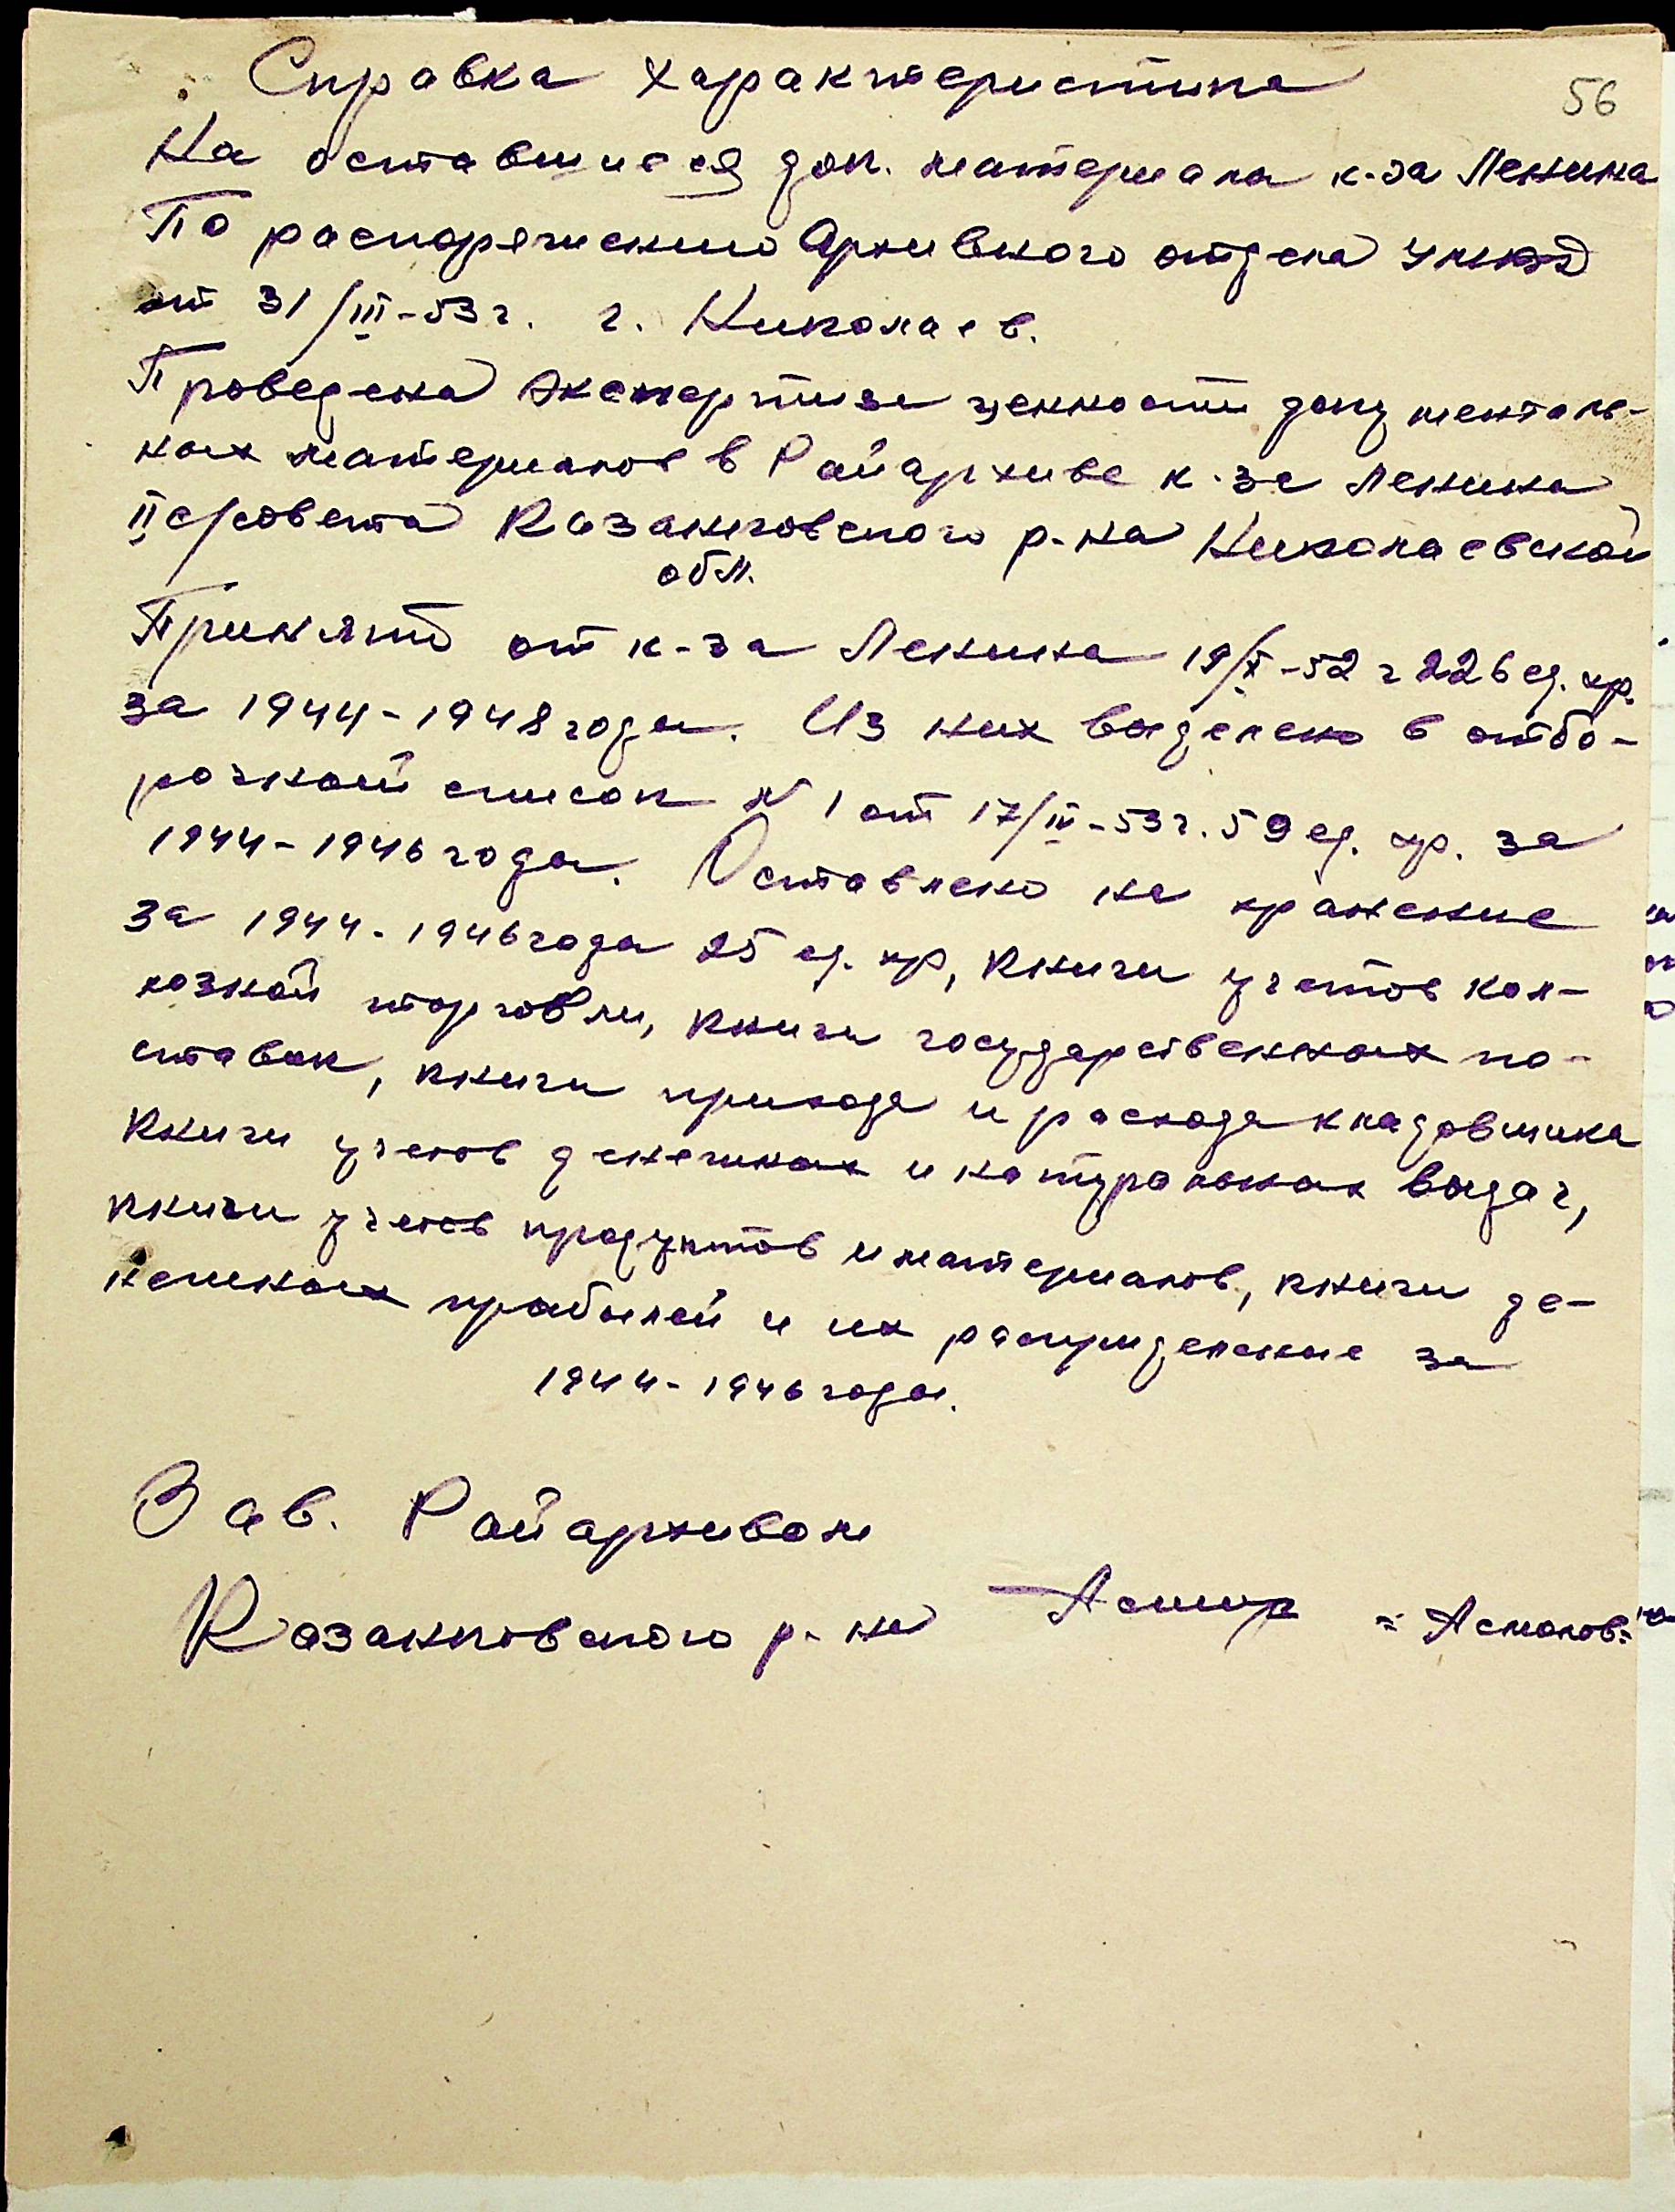 56
Справка характеристика
На оставшиеся док. материала к-за Ленина
По распоряжению Архивного отдела УМВД
от 31/III-53 г. г. Николаев.
Проведена экспертиза ценности документаль-
ных материалов в Райархиве к-за Ленина
II с/совета Казанковского р-на Николаевской
обл.
Принято от к-за Ленина 19/X-52 г 226 ед. хр.
за 1944-1948 годы. Из них выделено в отбо-
рочный список N 1 от 17/IV-53 г. 59 ед. хр. за
1944-1946 годы. Оставлено на хранение
за 1944-1946 годы 25 ед. хр, книги учетов кол-
хозной торговли, книги государственных по-
ставок, книги прихода и расхода кладовщика
книги учетов денежных и натуральных выдач,
книги учетов продуктов и материалов, книги де-
нежных прибылей и их распределение за
1944-1946 годы.
Зав. Райархивом
Казанковского р-на